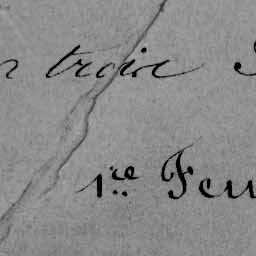 trois
1re Feu